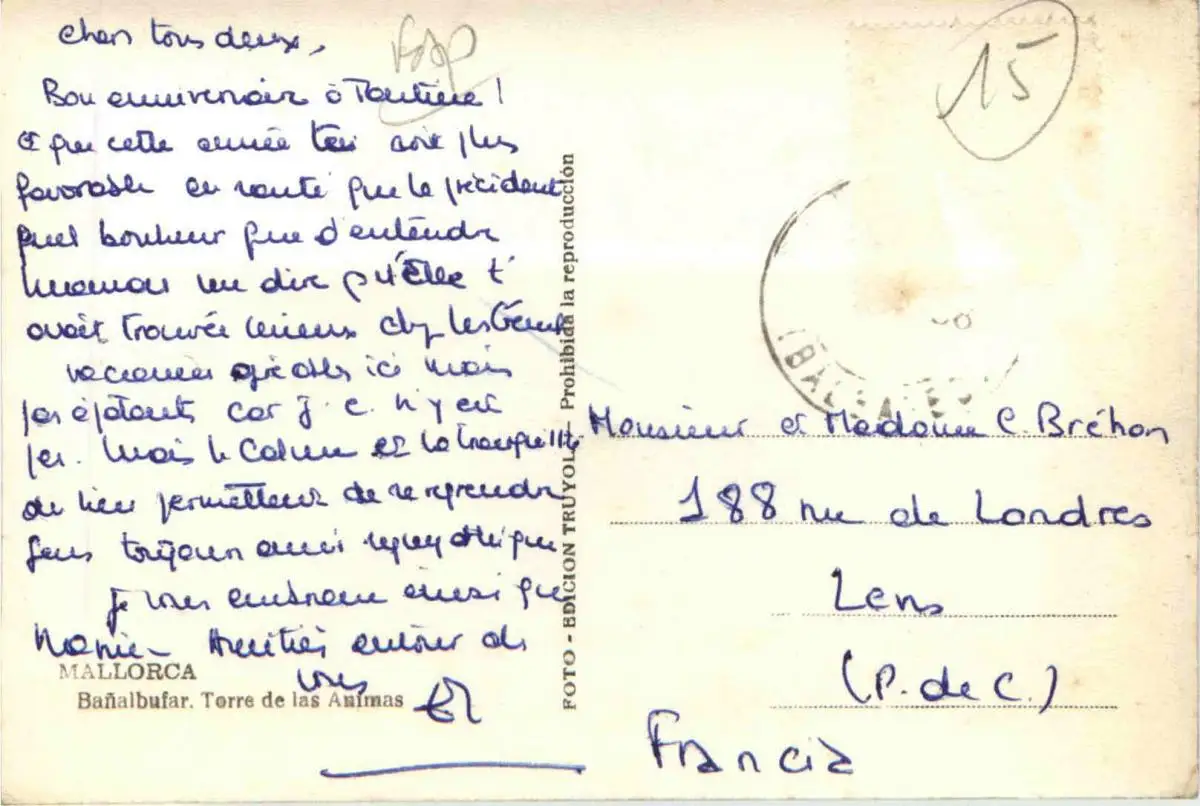 chers tous deux,
Bon anniversaire à Tantine !
et que cette année soit plus
favorable en santé que la précédente
quel bonheur que d'entendre
maman me dire qu'Elle t'
avait trouvée mieux chez les
vacances agréables ici mais
pas épatants car J. C. n'y est
pas. Mais le calme et la tranquillité
du lieu permettent de se reprendre
Gens toujours aussi sympathiques
je vous embrasse ainsi que
Mamie. Amitiés autour de
vous
MALLORCA
Bañalbufar. Torre de las Animas
FOTO - EDICION TRUYOL - Prohibida la reproducción
15
BALEARES
Monsieur et Madame C. Bréhon
188 rue de Londres
Lens
(P. de C.)
Francia